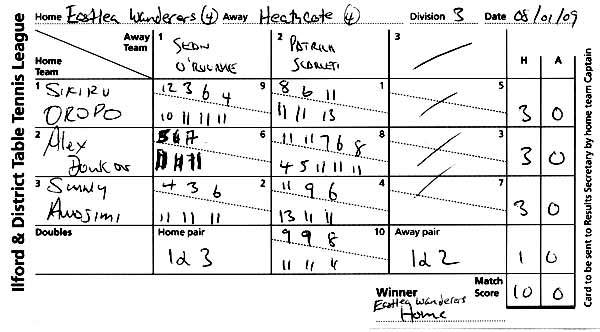 Ilford & District Table Tennis League
Home Eastlea Wanderers (4) Away Heathcote (4) Division 3 Date 08/01/09
Away Team
Home Team
1 SEAN O'ROURKE
2 PATRICK SCARLETT
3
H A
1 SIKIRU OROPO
12 3 6 4 9
10 11 11 11
8 6 11 1
11 11 13
5
3 0
2 Alex
6
11 11 7 6 8 8
4 5 11 11 11
3
3 0
3 Sunny
4 3 6 2
11 11 11
11 9 6 4
13 11 11
7
3 0
Doubles
Home pair
1 & 3
9 9 8 10
11 11 11
Away pair
1 & 2
1 0
Winner Eastlea Wanderers
Home
Match Score 10 0
Card to be sent to Results Secretary by home team Captain